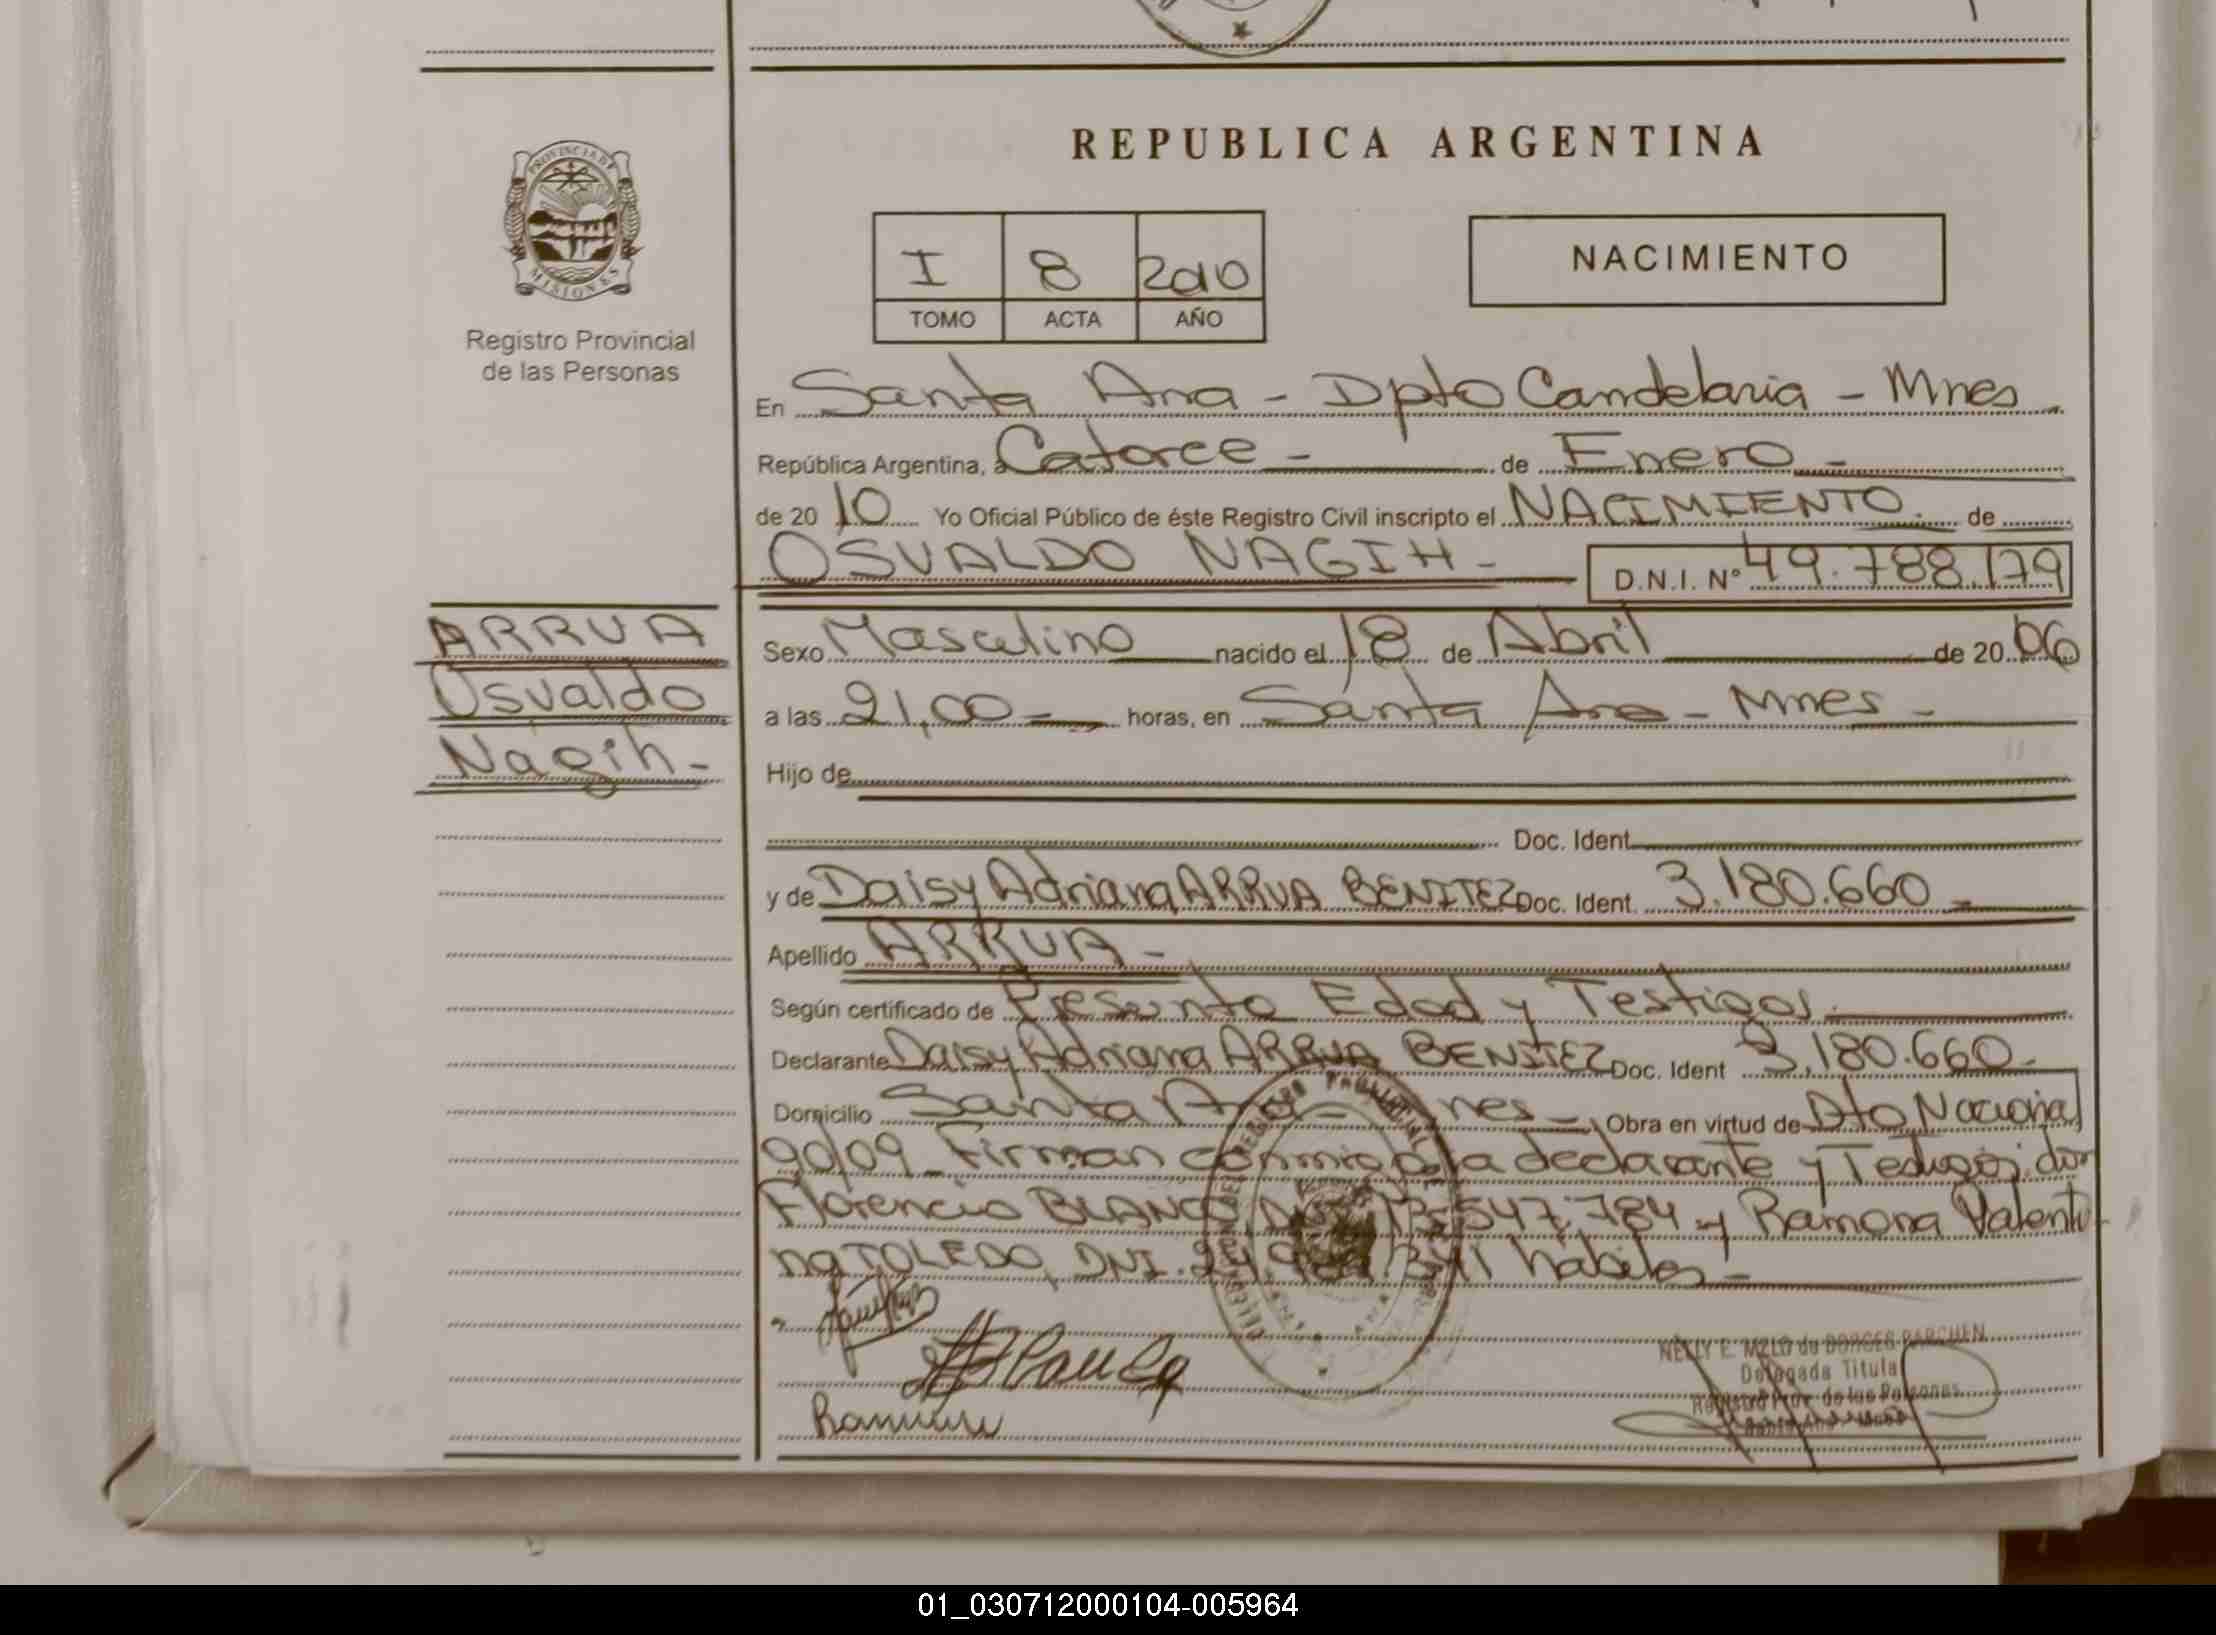 REPUBLICA ARGENTINA
PROVINCIA DE
MISIONES
Registro Provincial
de las Personas
I 8 2010
TOMO ACTA AÑO
NACIMIENTO
En Santa Ana - Dpto Candelaria - Mnes
República Argentina, a Catorce - de Enero -
de 20 10 Yo Oficial Público de éste Registro Civil inscripto el NACIMIENTO. de
OSVALDO NAGIH - D.N.I. Nº 49.788.179
ARRUA
Osvaldo
Nagih -
Sexo Masculino nacido el 18 de Abril de 20 06
a las 21,00 - horas, en Santa Ana - Mnes -
Hijo de
Doc. Ident.
y de Daisy Adriana ARRUA BENITEZ Doc. Ident. 3.180.660 -
Apellido ARRUA -
Según certificado de Presunta Edad y Testigos
Declarante Daisy Adriana ARRUA BENITEZ Doc. Ident 3.180.660 -
Domicilio Santa Ana - nes - Obra en virtud de Dto Nacional
90/09 - Firman conmigo la declarante y Testigos: don
Florencio BLANCO, 547.784 y Ramona Valenti
na TOLEDO, DNI. 341 habiles -
Blanco
NELLY E. MELO de BORGES PARCHEN
Delegada Titular
Registro Prov. de las Personas
01_030712000104-005964